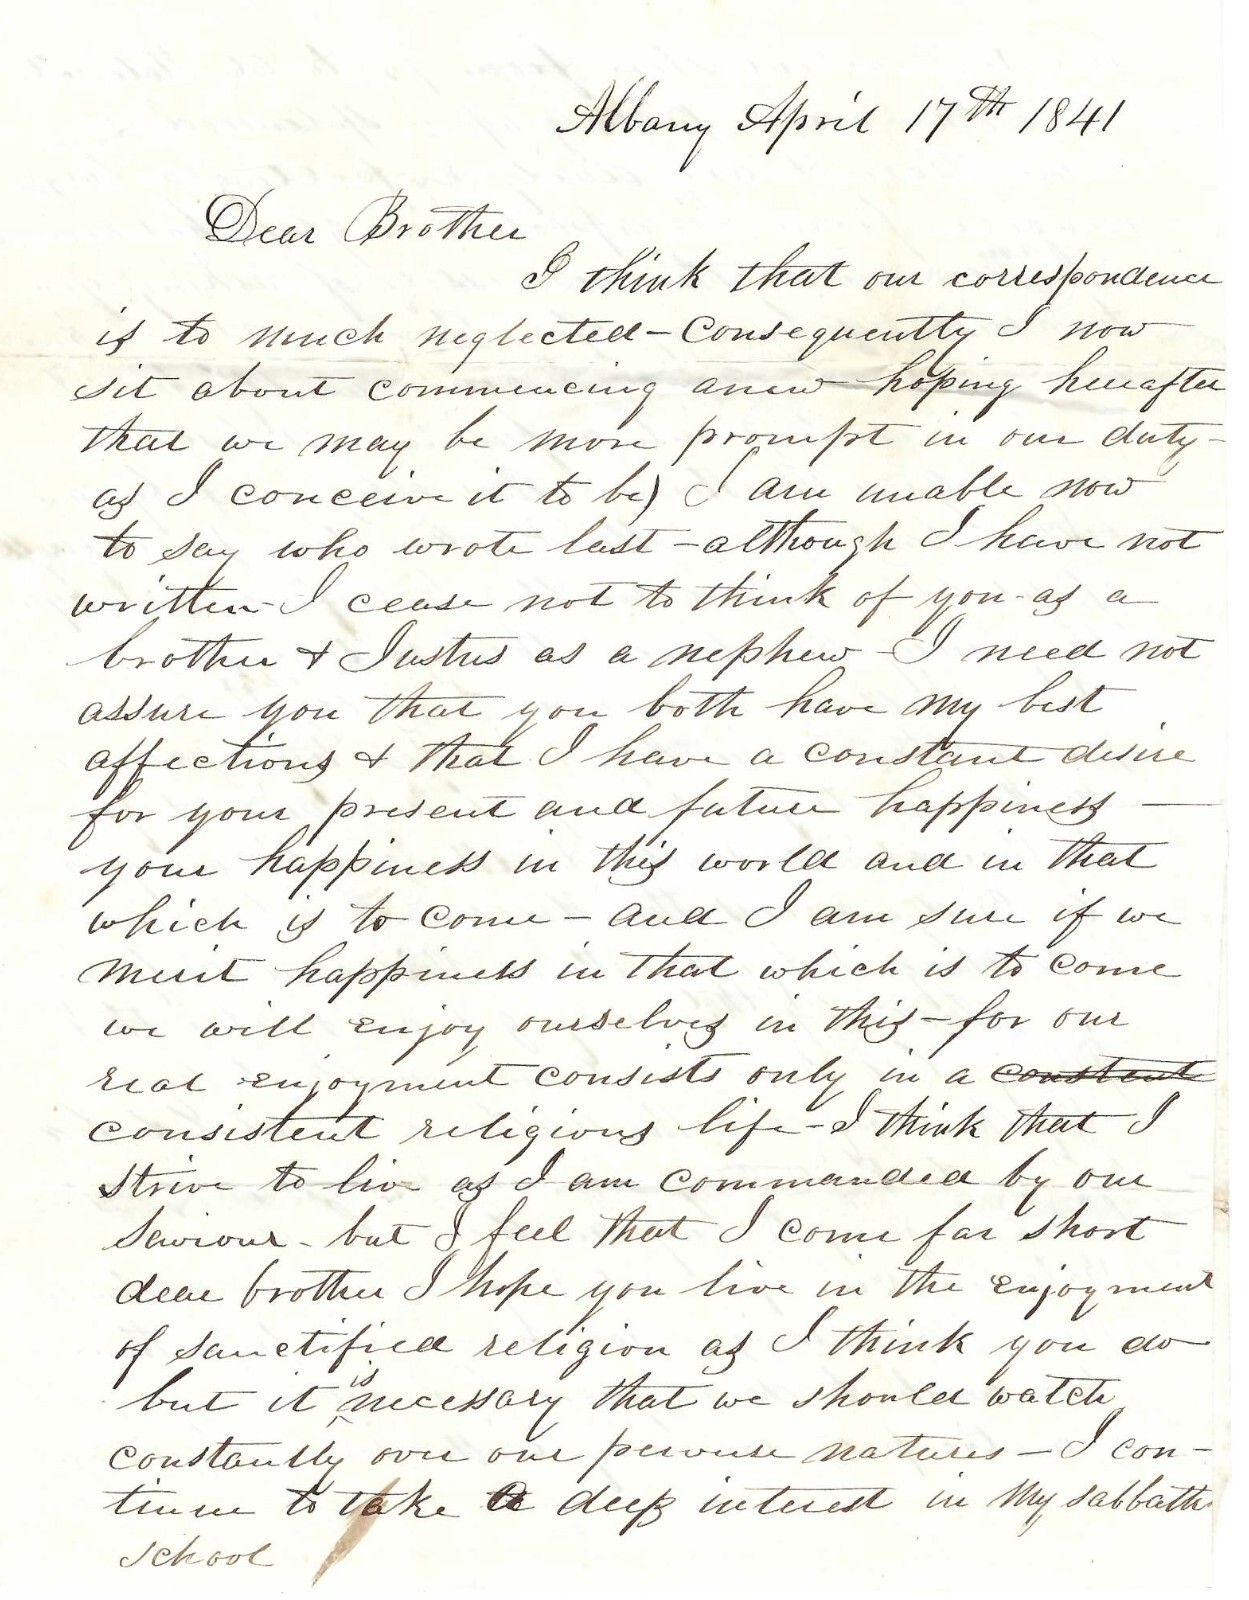 Albany April 17th 1841
Dear Brother
I think that our correspondence
is to much neglected - Consequently I now
sit about commencing anew hoping hereafter
that we may be more prompt in our duty -
as I conceive it to be) I am unable now
to say who wrote last - although I have not
written - I cease not to think of you - as a
brother & Justus as a nephew - I need not
assure you that you both have my best
affections & that I have a constant desire
for your present and future happiness —
your happiness in this world and in that
which is to come - and I am sure if we
merit happiness in that which is to come
we will enjoy ourselves in this - for our
real enjoyment consists only in a constent
consistent religious life - I think that I
strive to live as I am commanded by our
Saviour - but I feel that I come far short
dear brother I hope you live in the enjoyment
of sanctified religion as I think you do
but it is necessary that we should watch
constantly over our perverse natures - I con-
tinue to take a deep interest in my sabbath
school